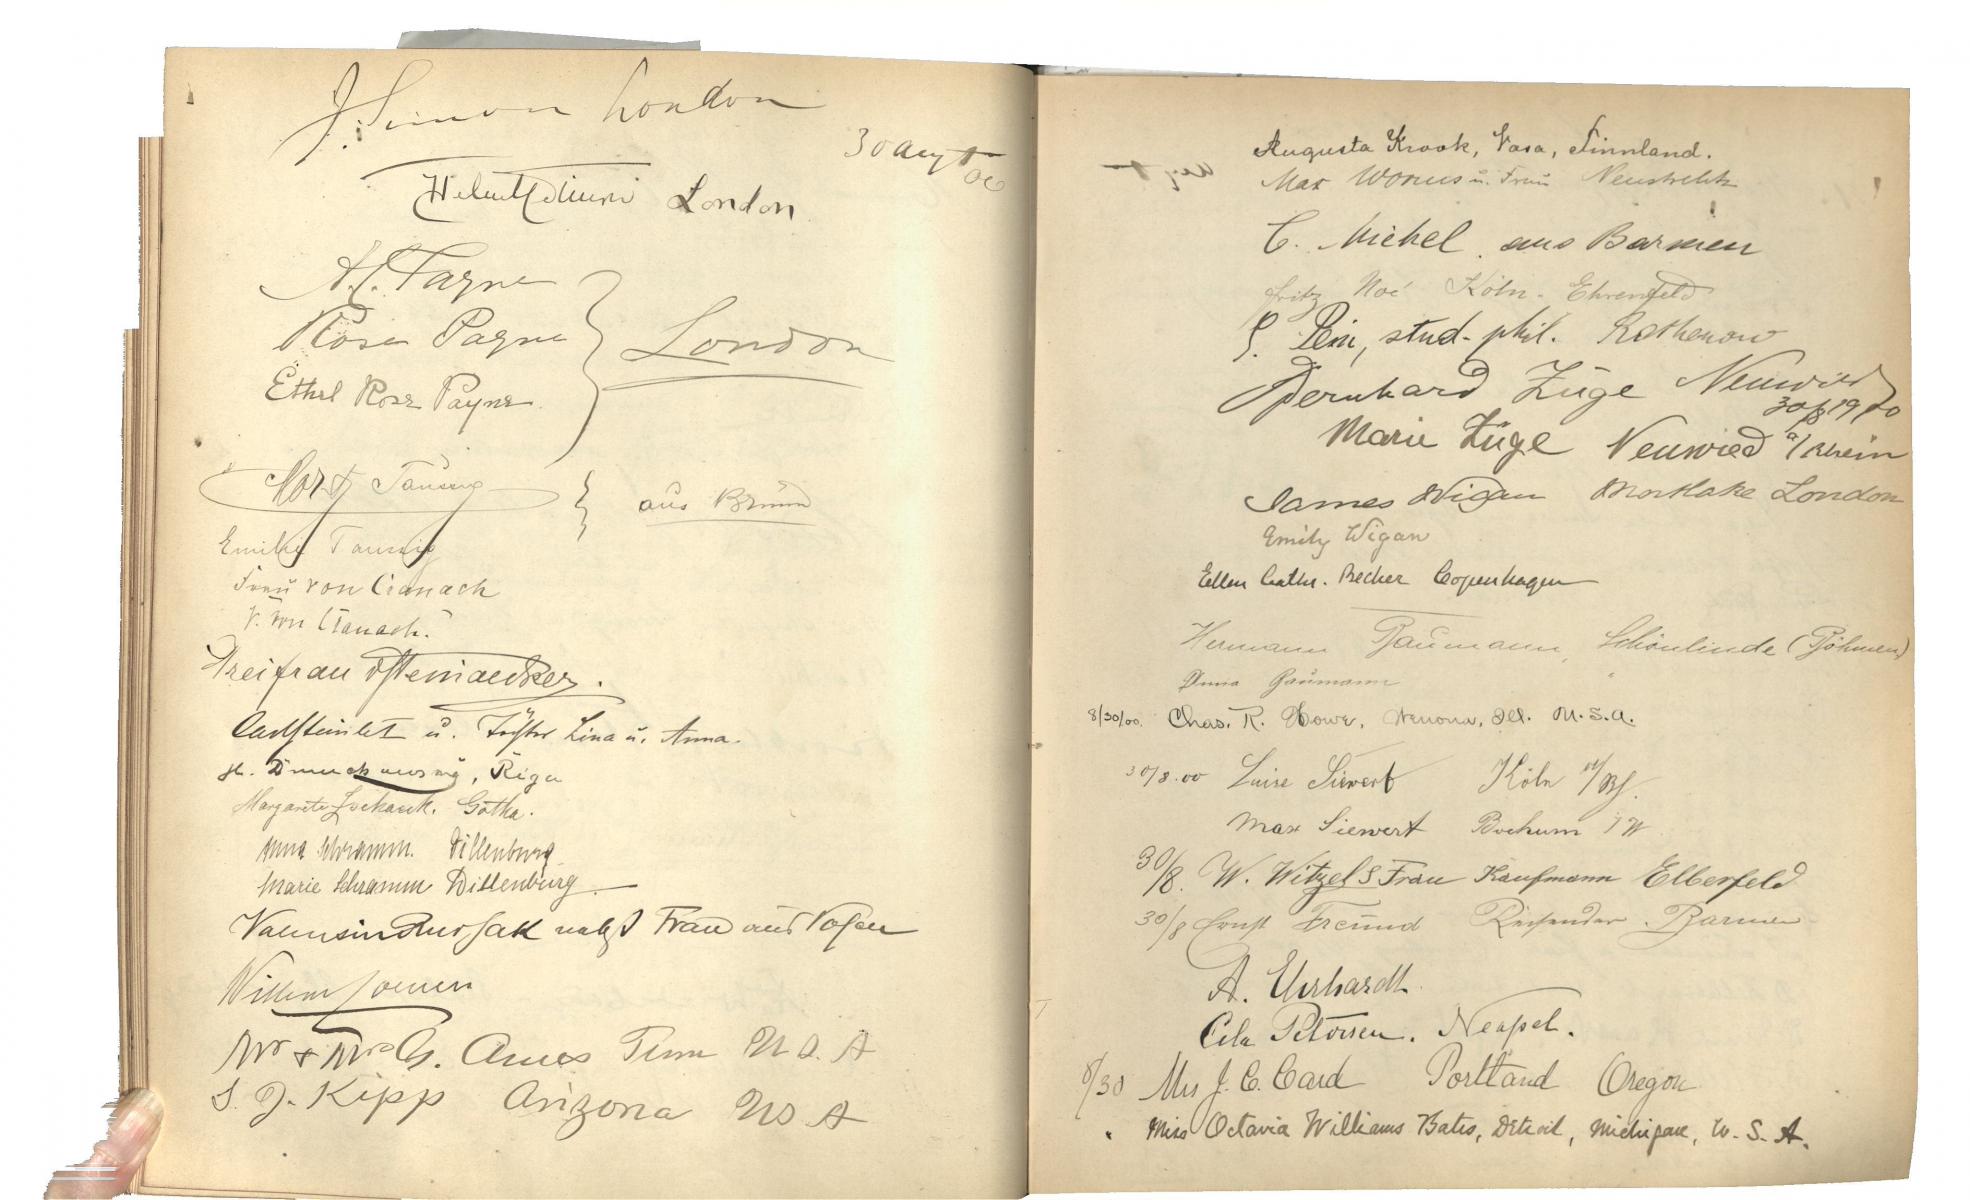 J. Simon London
30 Aug 00
London
A. C. Payne
Rosa Payne
London
Ethel Rose Payne
Taussig
aus Brünn
Emilie Taussig
Frau von Cranach
v. von Cranach.
Freifrau
u. Töchter Lina u. Anna.
Riga
Margarete Gotha.
Anna Schramm. Dillenburg
Marie Schramm Dillenburg
nebst Frau aus Posen
Willem
Mr & Mrs G. Ames Tenn U S. A
S. J. Kipp Arizona U S A
Augusta Krook, Vasa, Finnland.
Max Worms u. Frau Neustrelitz
C. Michel aus Barmen
Fritz Noé Köln-Ehrenfeld
Pein, stud. phil. Rathenow
Bernhard Züge Neuwied
30/8 1900
Marie Züge Neuwied a/Rhein
James Wigan Mortlake London
Emily Wigan
Ellen Cathr. Becker Copenhagen
Hermann Baumann, Schönlinde (Böhmen)
Anna Baumann "
8/30/00. Chas. R. Howe, Wenona, Ill. U.S.A.
30/8.00 Luise Siewert Köln a/Rh.
Max Siewert Bochum i W
30/8. W. Witzel & Frau Kaufmann Elberfeld
30/8 Ernst Freund Reisender Barmen
A. Ehrhardt.
Petersen. Neapel.
8/30 Mrs J. C. Card Portland Oregon
" Miss Octavia Williams Bates, Detroit, Michigan, U. S. A.